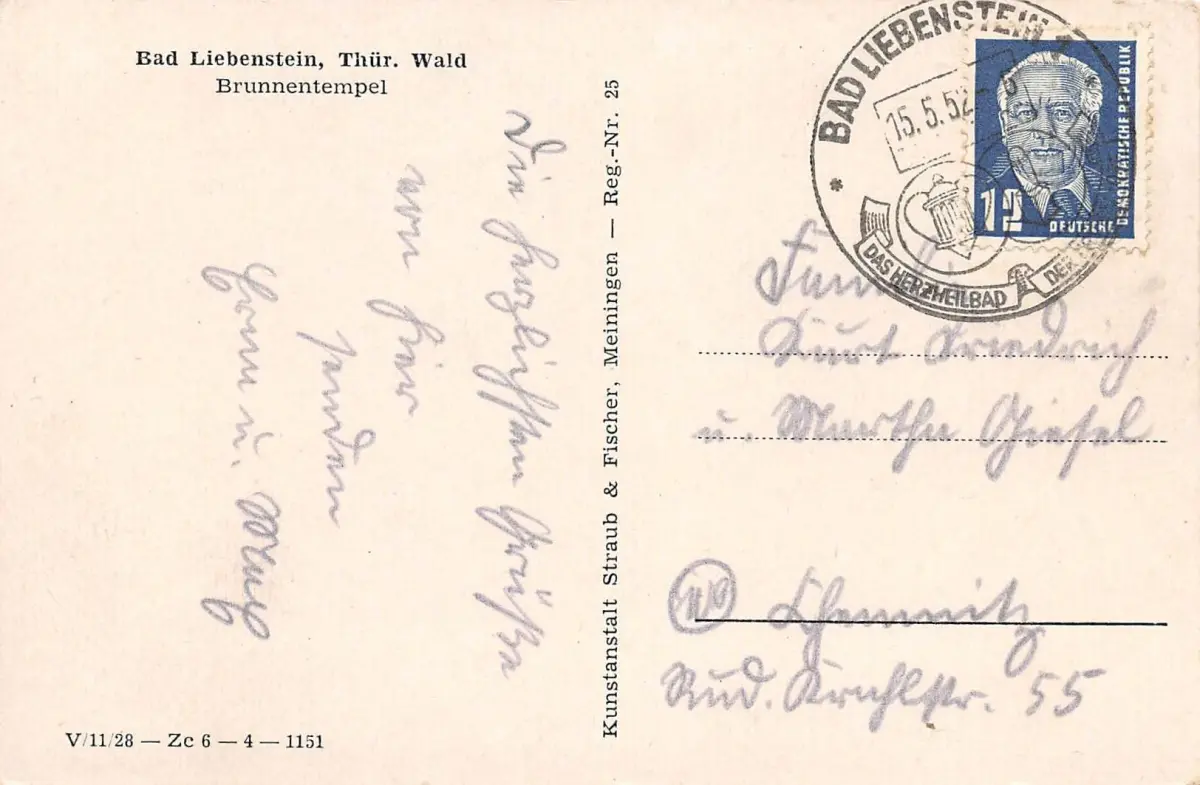 Bad Liebenstein, Thür. Wald
Brunnentempel
Die herzlichsten Grüße
von hier
senden
V/11/28 — Zc 6 — 4 — 1151
Kunstanstalt Straub & Fischer, Meiningen — Reg.-Nr. 25
BAD LIEBENSTEIN
15.5.52
DAS HERZHEILBAD
DER
12
DEUTSCHE
DEMOKRATISCHE REPUBLIK
Kurt Friedrich
u. Martha Giesel
Chemnitz
55